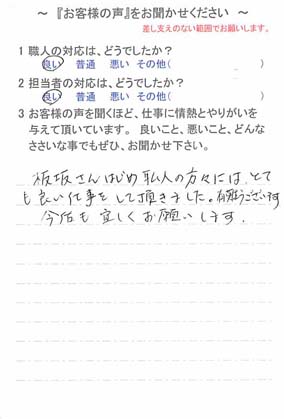 ～ 『お客様の声』をお聞かせください ～
差し支えのない範囲でお願いします。
1 職人の対応は、どうでしたか？
良い 普通 悪い その他( )
2 担当者の対応は、どうでしたか？
良い 普通 悪い その他( )
3 お客様の声を聞くほど、仕事に情熱とやりがいを
与えて頂いています。 良いこと、悪いこと、どんな
ささいな事でもぜひ、お聞かせ下さい。
板坂さんはじめ職人の方々には、とて
も良い仕事をして頂きました。有難うございます
今后も宜しくお願いします。